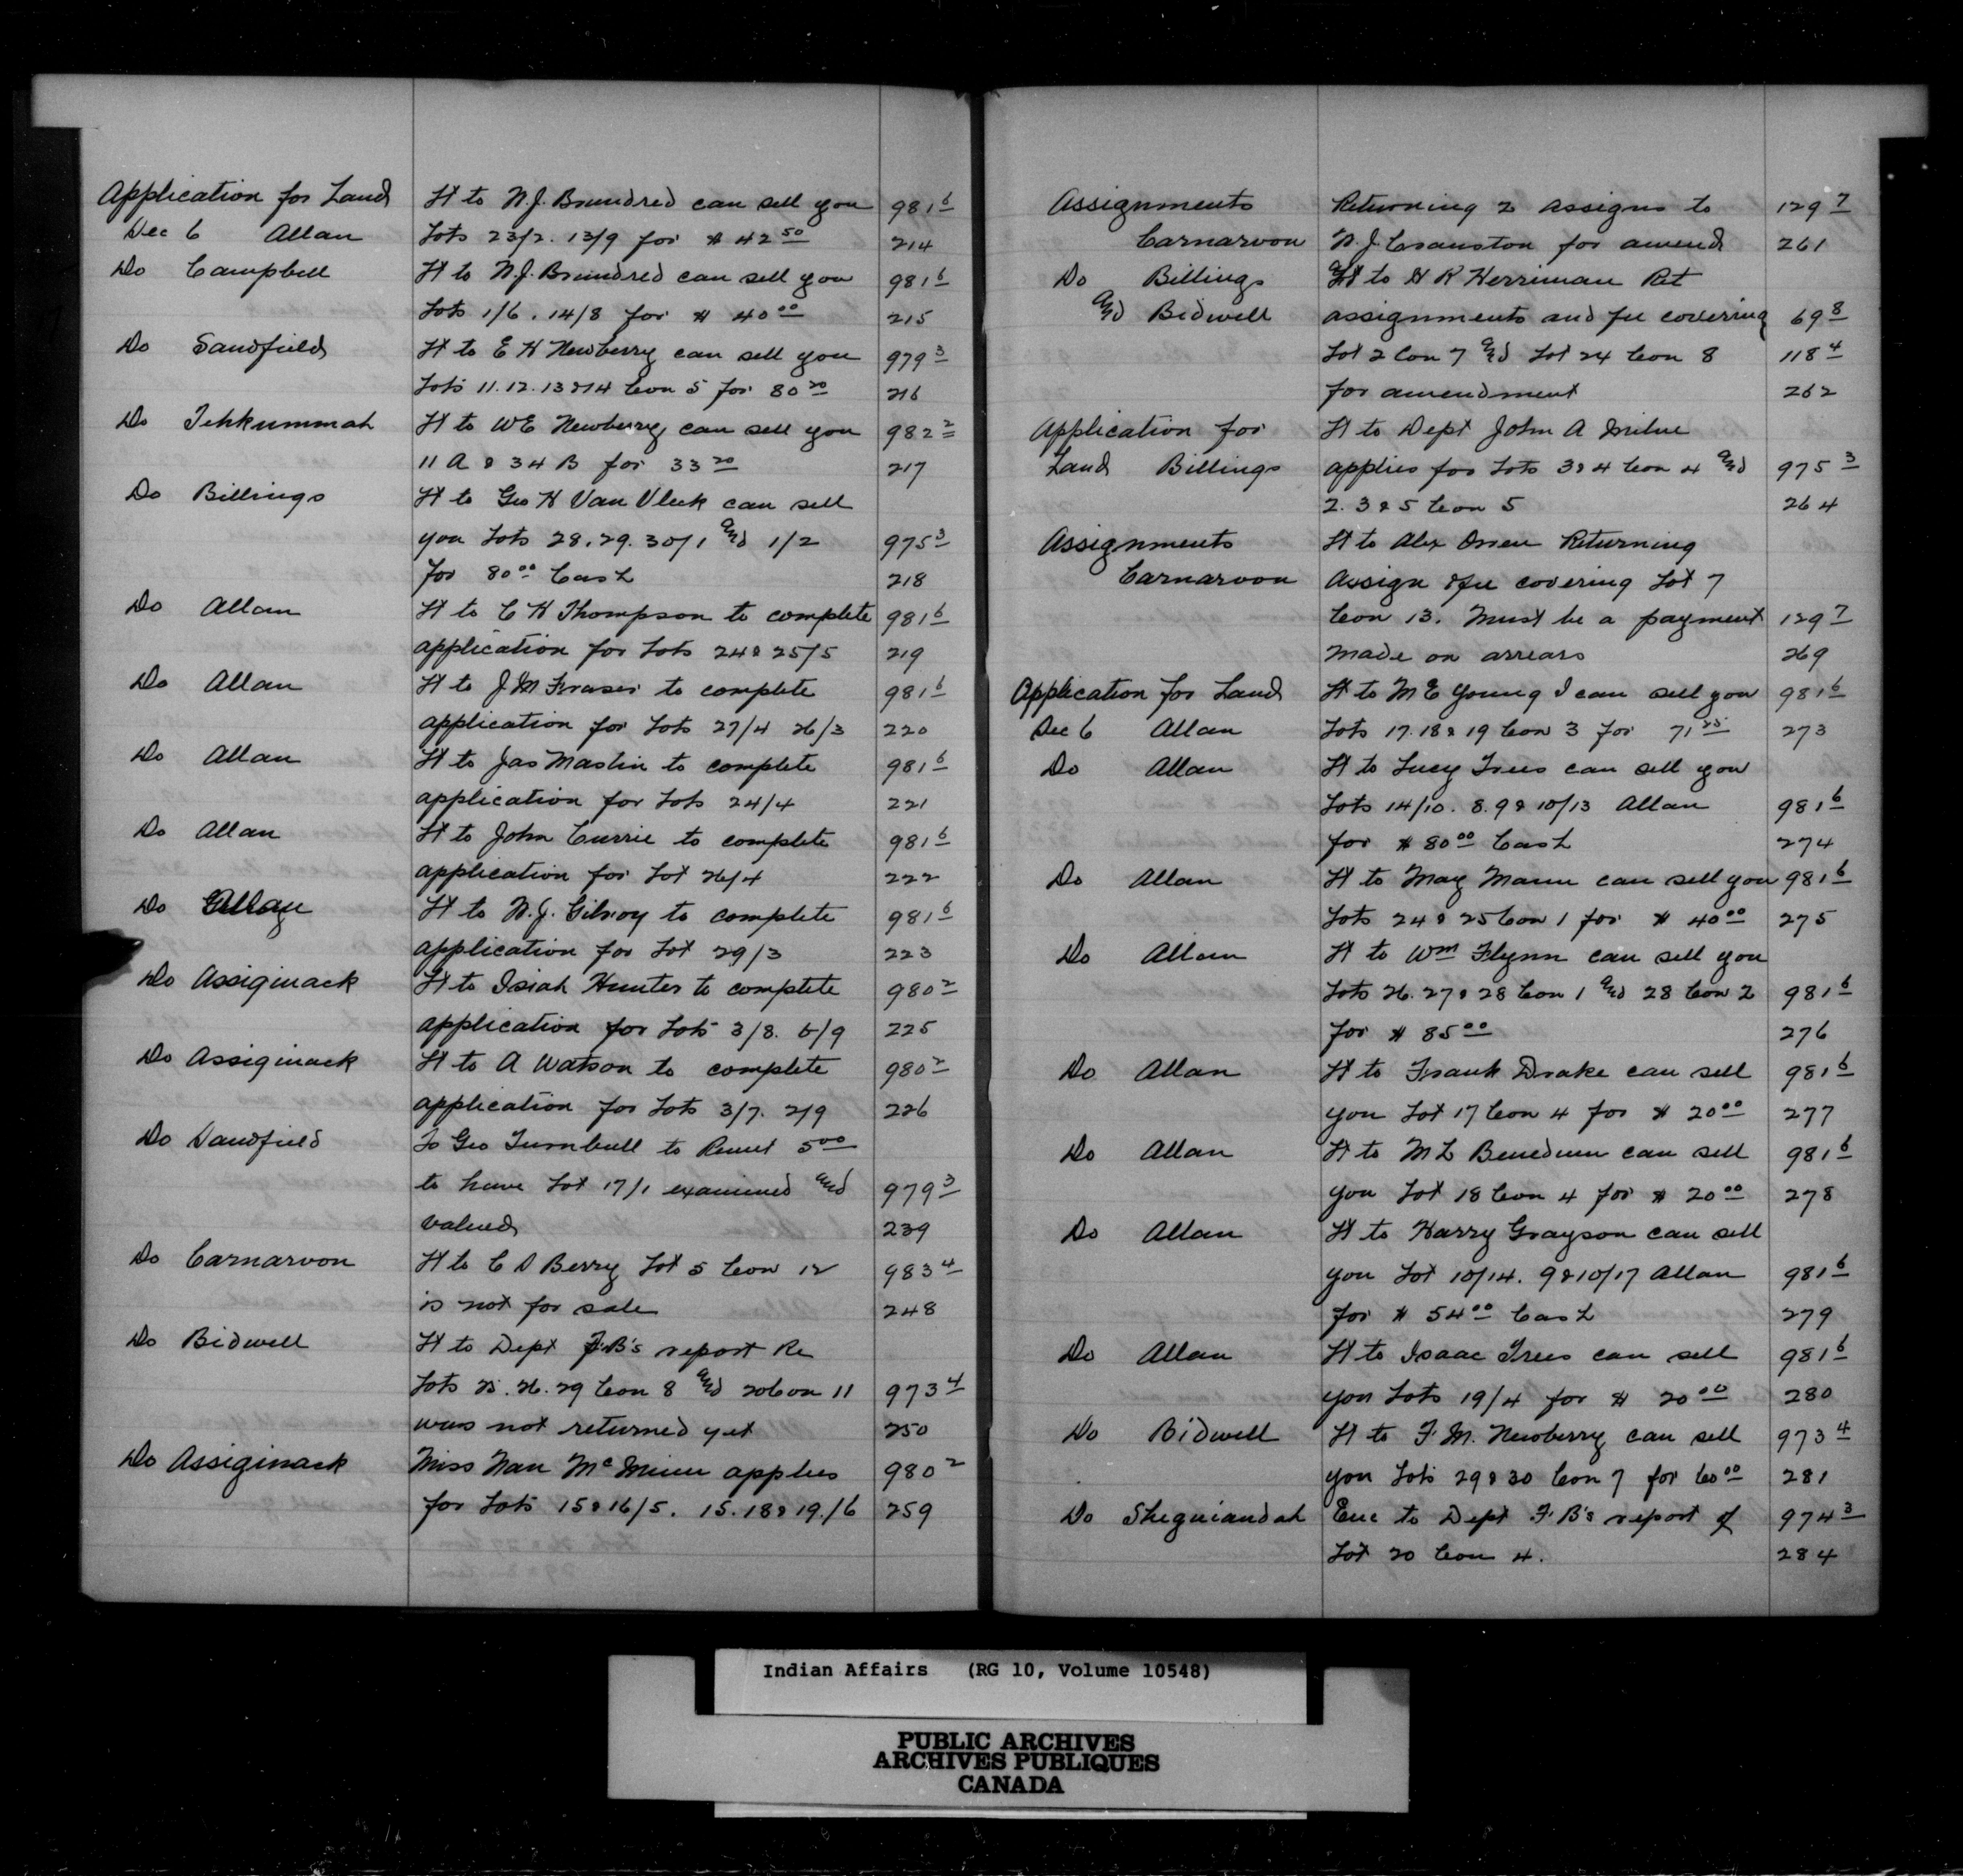 Application for Land Lt to N.J. Brundred can sell you 981 6
Dec 6 Allan Lots 23/2. 13/9 for $ 42 50 214
Do Campbell Lt to N.J. Brundred can sell you 981 6
Lots 1/6. 14/8 for $ 40 00 215
Do Sandfield Lt to E H Newberry can sell you 979 3
Lots 11. 12. 13 & 14 Con 5 for 80 20 216
Do Tehkummah Lt to WE Newberry can sell you 982 2
11 A & 34 B for 33 20 217
Do Billings Lt to Geo H Van Vleck can sell
you Lots 28. 29. 30/1 and 1/2 975 3
for 80 00 Cash 218
Do Allan Lt to C H Thompson to complete 981 6
application for Lots 24 & 25/5 219
Do Allan Lt to J M Fraser to complete 981 6
application for Lots 27/4 26/3 220
Do Allan Lt to Jas Mastin to complete 981 6
application for Lots 24/4 221
Do Allan Lt to John Currie to complete 981 6
application for Lot 26/4 222
Do Lt to N.J. Gilroy to complete 981 6
application for Lot 29/3 223
Do Assiginack Lt to Isiah Hunter to complete 980 2
application for Lots 3/8. 6/9 225
Do Assiginack Lt to A Watson to complete 980 2
application for Lots 3/7. 2/9 226
Do Sandfield To Geo Turnbull to Remit 5 00
to have Lot 17/1 examined and 979 3
valued 239
Do Carnarvon Lt to C D Berry Lot 5 Con 12 983 4
is not for sale 248
Do Bidwell Lt to Dept F.B's report Re
Lots 25. 26. 29 Con 8 and 20 Con 11 973 4
was not returned yet 250
Do Assiginack Miss Nan McMinn applies 980 2
for Lots 15 & 16/5. 15. 18 & 19/6 259
Assignments Returning 2 Assigns to 129 7
Carnarvon N.J. Cranston for amend 261
Do Billings Lt to H R Herriman Ret
and Bidwell assignments and fee covering 69 8
Lot 2 Con 7 and Lot 24 Con 8 118 4
for amendment 262
Application for Lt to Dept John A Milne
Land Billings applies for Lots 3 & 4 Con 4 and 975 3
2. 3 & 5 Con 5 264
Assignments Lt to Alex Returning
Carnarvon Assign & fee covering Lot 7
Con 13. Must be a payment 129 7
made on arrears 269
Application for Land Lt to M E Young I can sell you 981 6
Dec 6 Allan Lots 17. 18 & 19 Con 3 for 71 25 273
Do Allan Lt to Lucy Trees can sell you
Lots 14/10. 8. 9 & 10/13 Allan 981 6
for $ 80 00 Cash 274
Do Allan Lt to May Mann can sell you 981 6
Lots 24 & 25 Con 1 for $ 40 00 275
Do Allan Lt to Wm Flynn can sell you
Lots 26. 27 & 28 Con 1 and 28 Con 2 981 6
for $ 85 00 276
Do Allan Lt to Frank Drake can sell 981 6
you Lot 17 Con 4 for $ 20 00 277
Do Allan Lt to M L Benedum can sell 981 6
you Lot 18 Con 4 for $ 20 00 278
Do Allan Lt to Harry Grayson can sell
you Lot 10/14. 9 & 10/17 Allan 981 6
for $ 54 00 Cash 279
Do Allan Lt to Isaac Trees can sell 981 6
you Lots 19/4 for $ 20 00 280
Do Bidwell Lt to F. M. Newberry can sell 973 4
you Lots 29 & 30 Con 7 for 60 00 281
Do Sheguiandah Enc to Dept F.B's report of 974 3
Lot 20 Con 4. 284
Indian Affairs (RG 10, Volume 10548)
PUBLIC ARCHIVES
ARCHIVES PUBLIQUES
CANADA